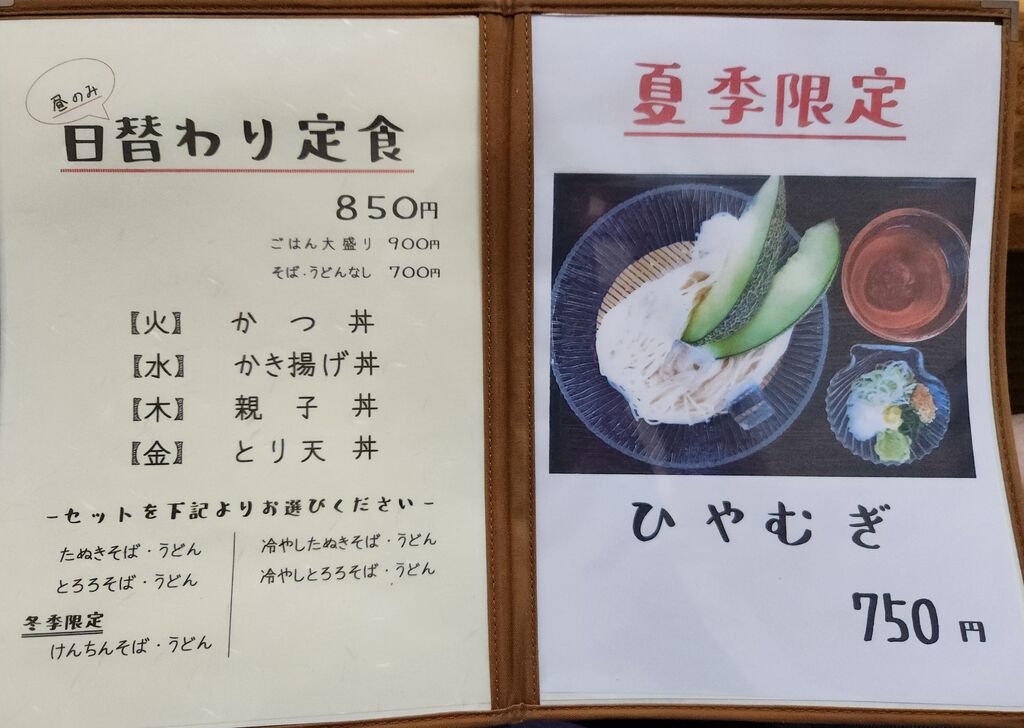 昼のみ
日替わり定食
850円
ごはん大盛り 900円
そば・うどんなし 700円
【火】 かつ丼
【水】 かき揚げ丼
【木】 親子丼
【金】 とり天丼
-セットを下記よりお選びください-
たぬきそば・うどん
とろろそば・うどん
冬季限定
けんちんそば・うどん
冷やしたぬきそば・うどん
冷やしとろろそば・うどん
夏季限定
ひやむぎ
750円